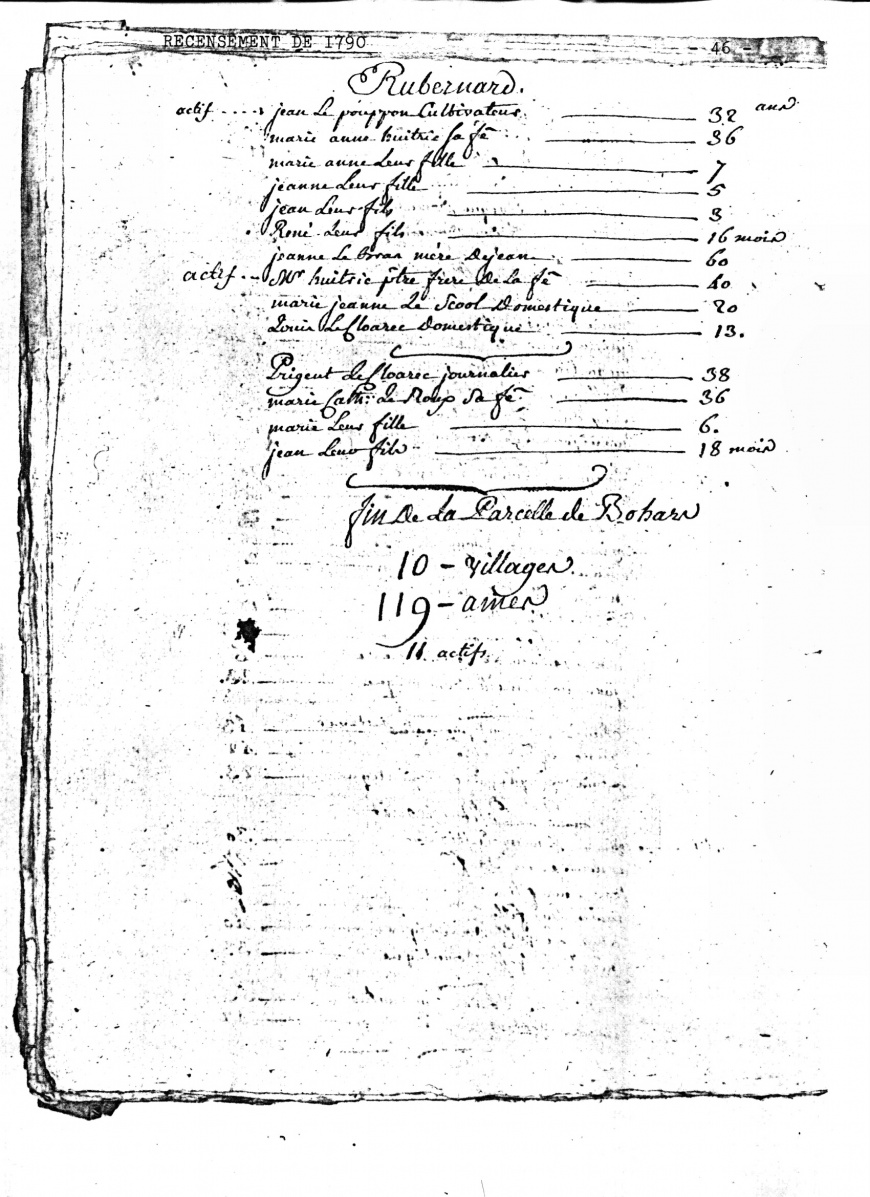 RECENSEMENT DE 1790 - 46 -
Rubernard.
actif .... jean Le pouppon Cultivateur 32 ans
marie anne huitric sa fe 36
marie anne Leur fille 7
jeanne Leur fille 5
jean Leur fils 3
René Leur fils 16 mois
jeanne Le mére De jean 60
actif .. Mr huitric ptre frere De La fe 40
marie jeanne Le Scool Domestique 20
Louis Le Cloarec Domestique 13.
Prigent Le Cloarec journalier 38
marie Cath: Le Roux Sa fe 36
marie Leur fille 6.
jean Leur fils 18 mois
fin De La Parcelle de Bohars
10 - villages.
119 - ames
11 actifs